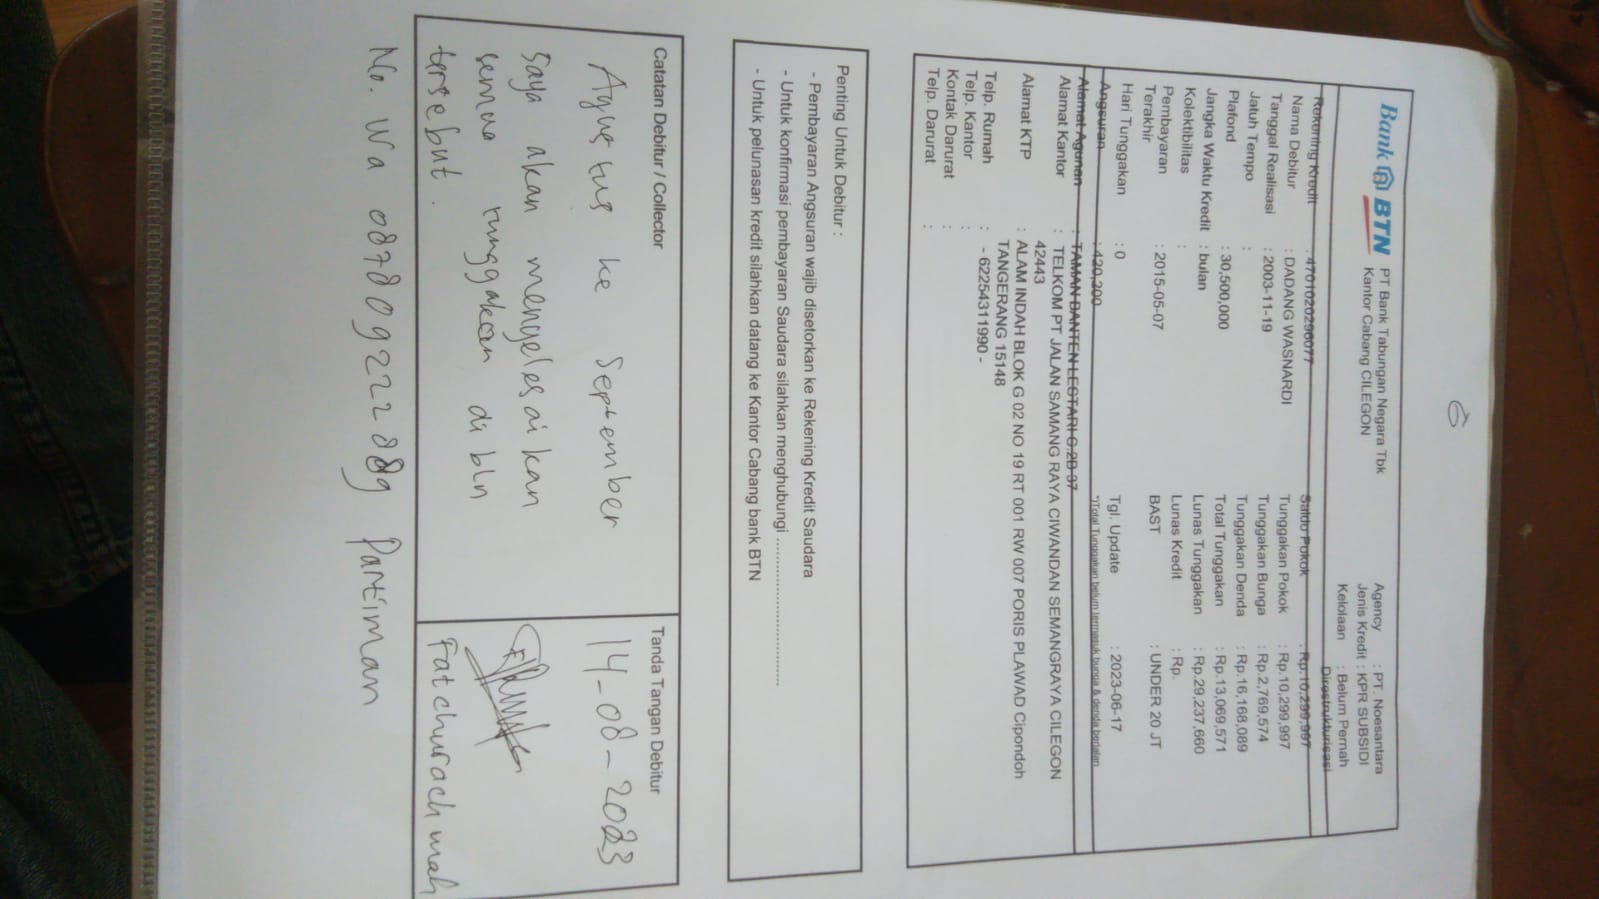 6
Bank BTN
PT Bank Tabungan Negara Tbk
Kantor Cabang CILEGON
Agency : PT. Noesantara
Jenis Kredit : KPR SUBSIDI
Kelolaan : Belum Pernah
Direstrukturisasi
Rekening Kredit : 4701020296077
Nama Debitur : DADANG WASNARDI
Tanggal Realisasi : 2003-11-19
Jatuh Tempo :
Plafond : 30,500,000
Jangka Waktu Kredit : bulan
Kolektibilitas :
Pembayaran : 2015-05-07
Terakhir
Hari Tunggakan : 0
Angsuran : 420,200
Saldo Pokok : Rp.10,299,997
Tunggakan Pokok : Rp.10,299,997
Tunggakan Bunga : Rp.2,769,574
Tunggakan Denda : Rp.16,168,089
Total Tunggakan : Rp.13,069,571
Lunas Tunggakan : Rp.29,237,660
Lunas Kredit : Rp.
BAST : UNDER 20 JT
Tgl. Update : 2023-06-17
*)Total Tunggakan belum termasuk bunga & denda berjalan
Alamat Agunan : TAMAN BANTEN LESTARI C 2B 37
Alamat Kantor : TELKOM PT JALAN SAMANG RAYA CIWANDAN SEMANGRAYA CILEGON
42443
Alamat KTP : ALAM INDAH BLOK G 02 NO 19 RT 001 RW 007 PORIS PLAWAD Cipondoh
TANGERANG 15148
Telp. Rumah : - 62254311990 -
Telp. Kantor :
Kontak Darurat :
Telp. Darurat :
Penting Untuk Debitur :
- Pembayaran Angsuran wajib disetorkan ke Rekening Kredit Saudara
- Untuk konfirmasi pembayaran Saudara silahkan menghubungi ..............................
- Untuk pelunasan kredit silahkan datang ke Kantor Cabang bank BTN
Catatan Debitur / Collector
Agustus ke September
saya akan menyelesaikan
semua tunggakan di bln
tersebut.
Tanda Tangan Debitur
14-08-2023
Fatchurachmah
No. Wa 087809222889 Partiman